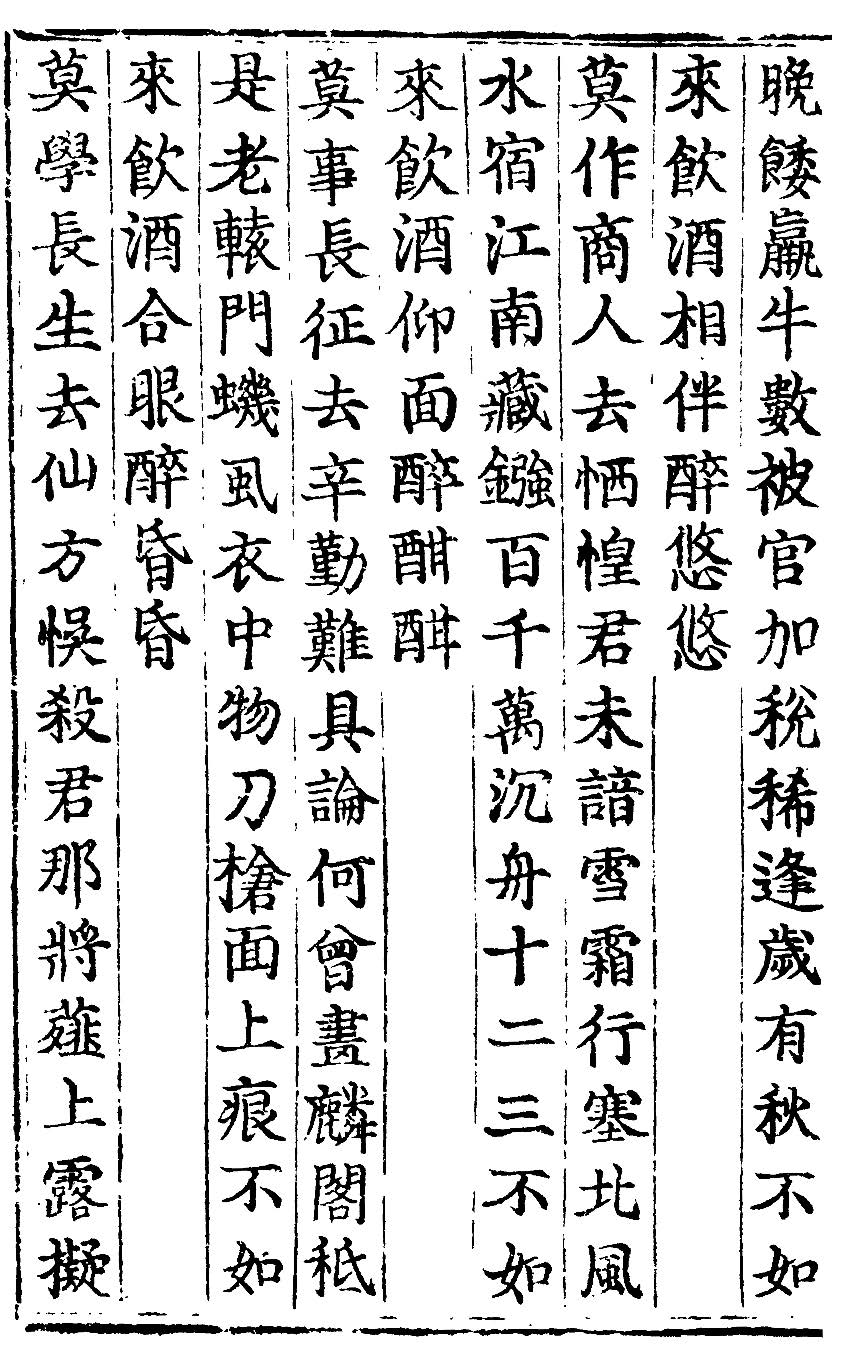 晚餧羸牛數被官加稅稀逢歲有秋不如
來飲酒相伴醉悠悠
莫作商人去恓惶君未諳雪霜行塞北風
水宿江南藏鏹百千萬沉舟十二三不如
來飲酒仰面醉酣酣
莫事長征去辛勤難具論何曾畫麟閣秪
是老轅門蟣虱衣中物刀槍面上痕不如
來飲酒合眼醉昏昏
莫學長生去仙方悞殺君那將薤上露擬